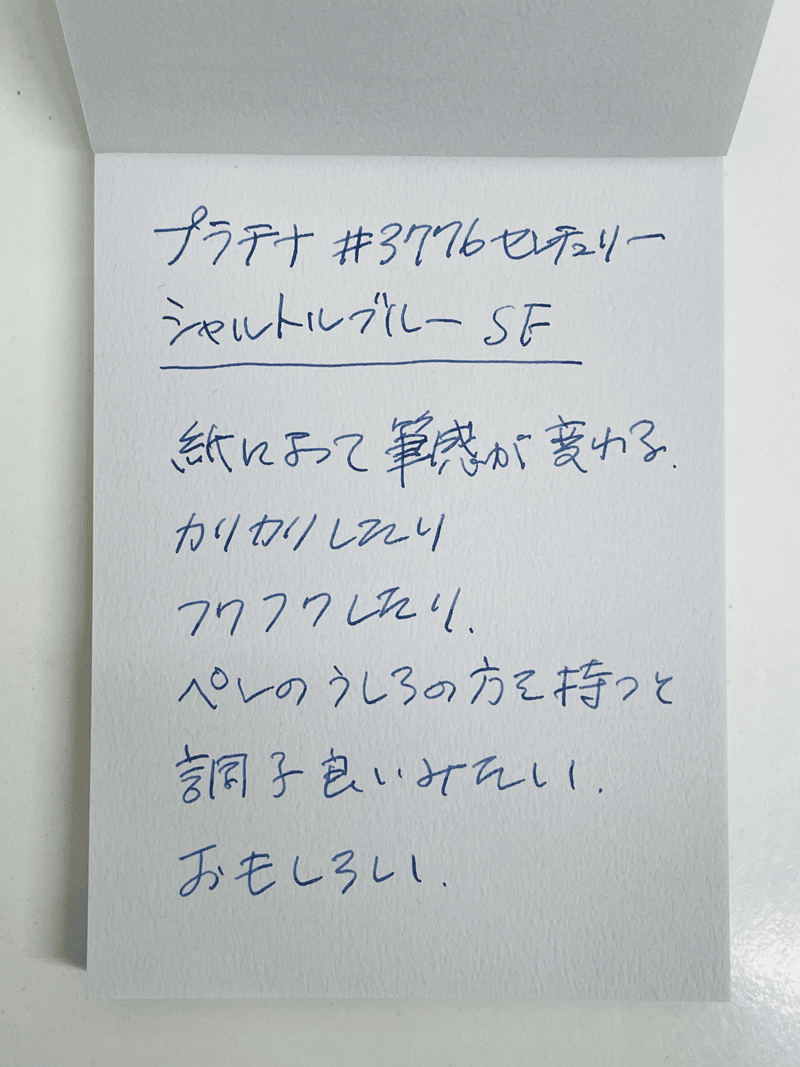 プラチナ #3776センチュリー
シャルトルブルー SF
紙によって筆感が変わる.
カリカリしたり
フワフワしたり.
ペンのうしろの方を持つと
調子良いみたい.
おもしろい.